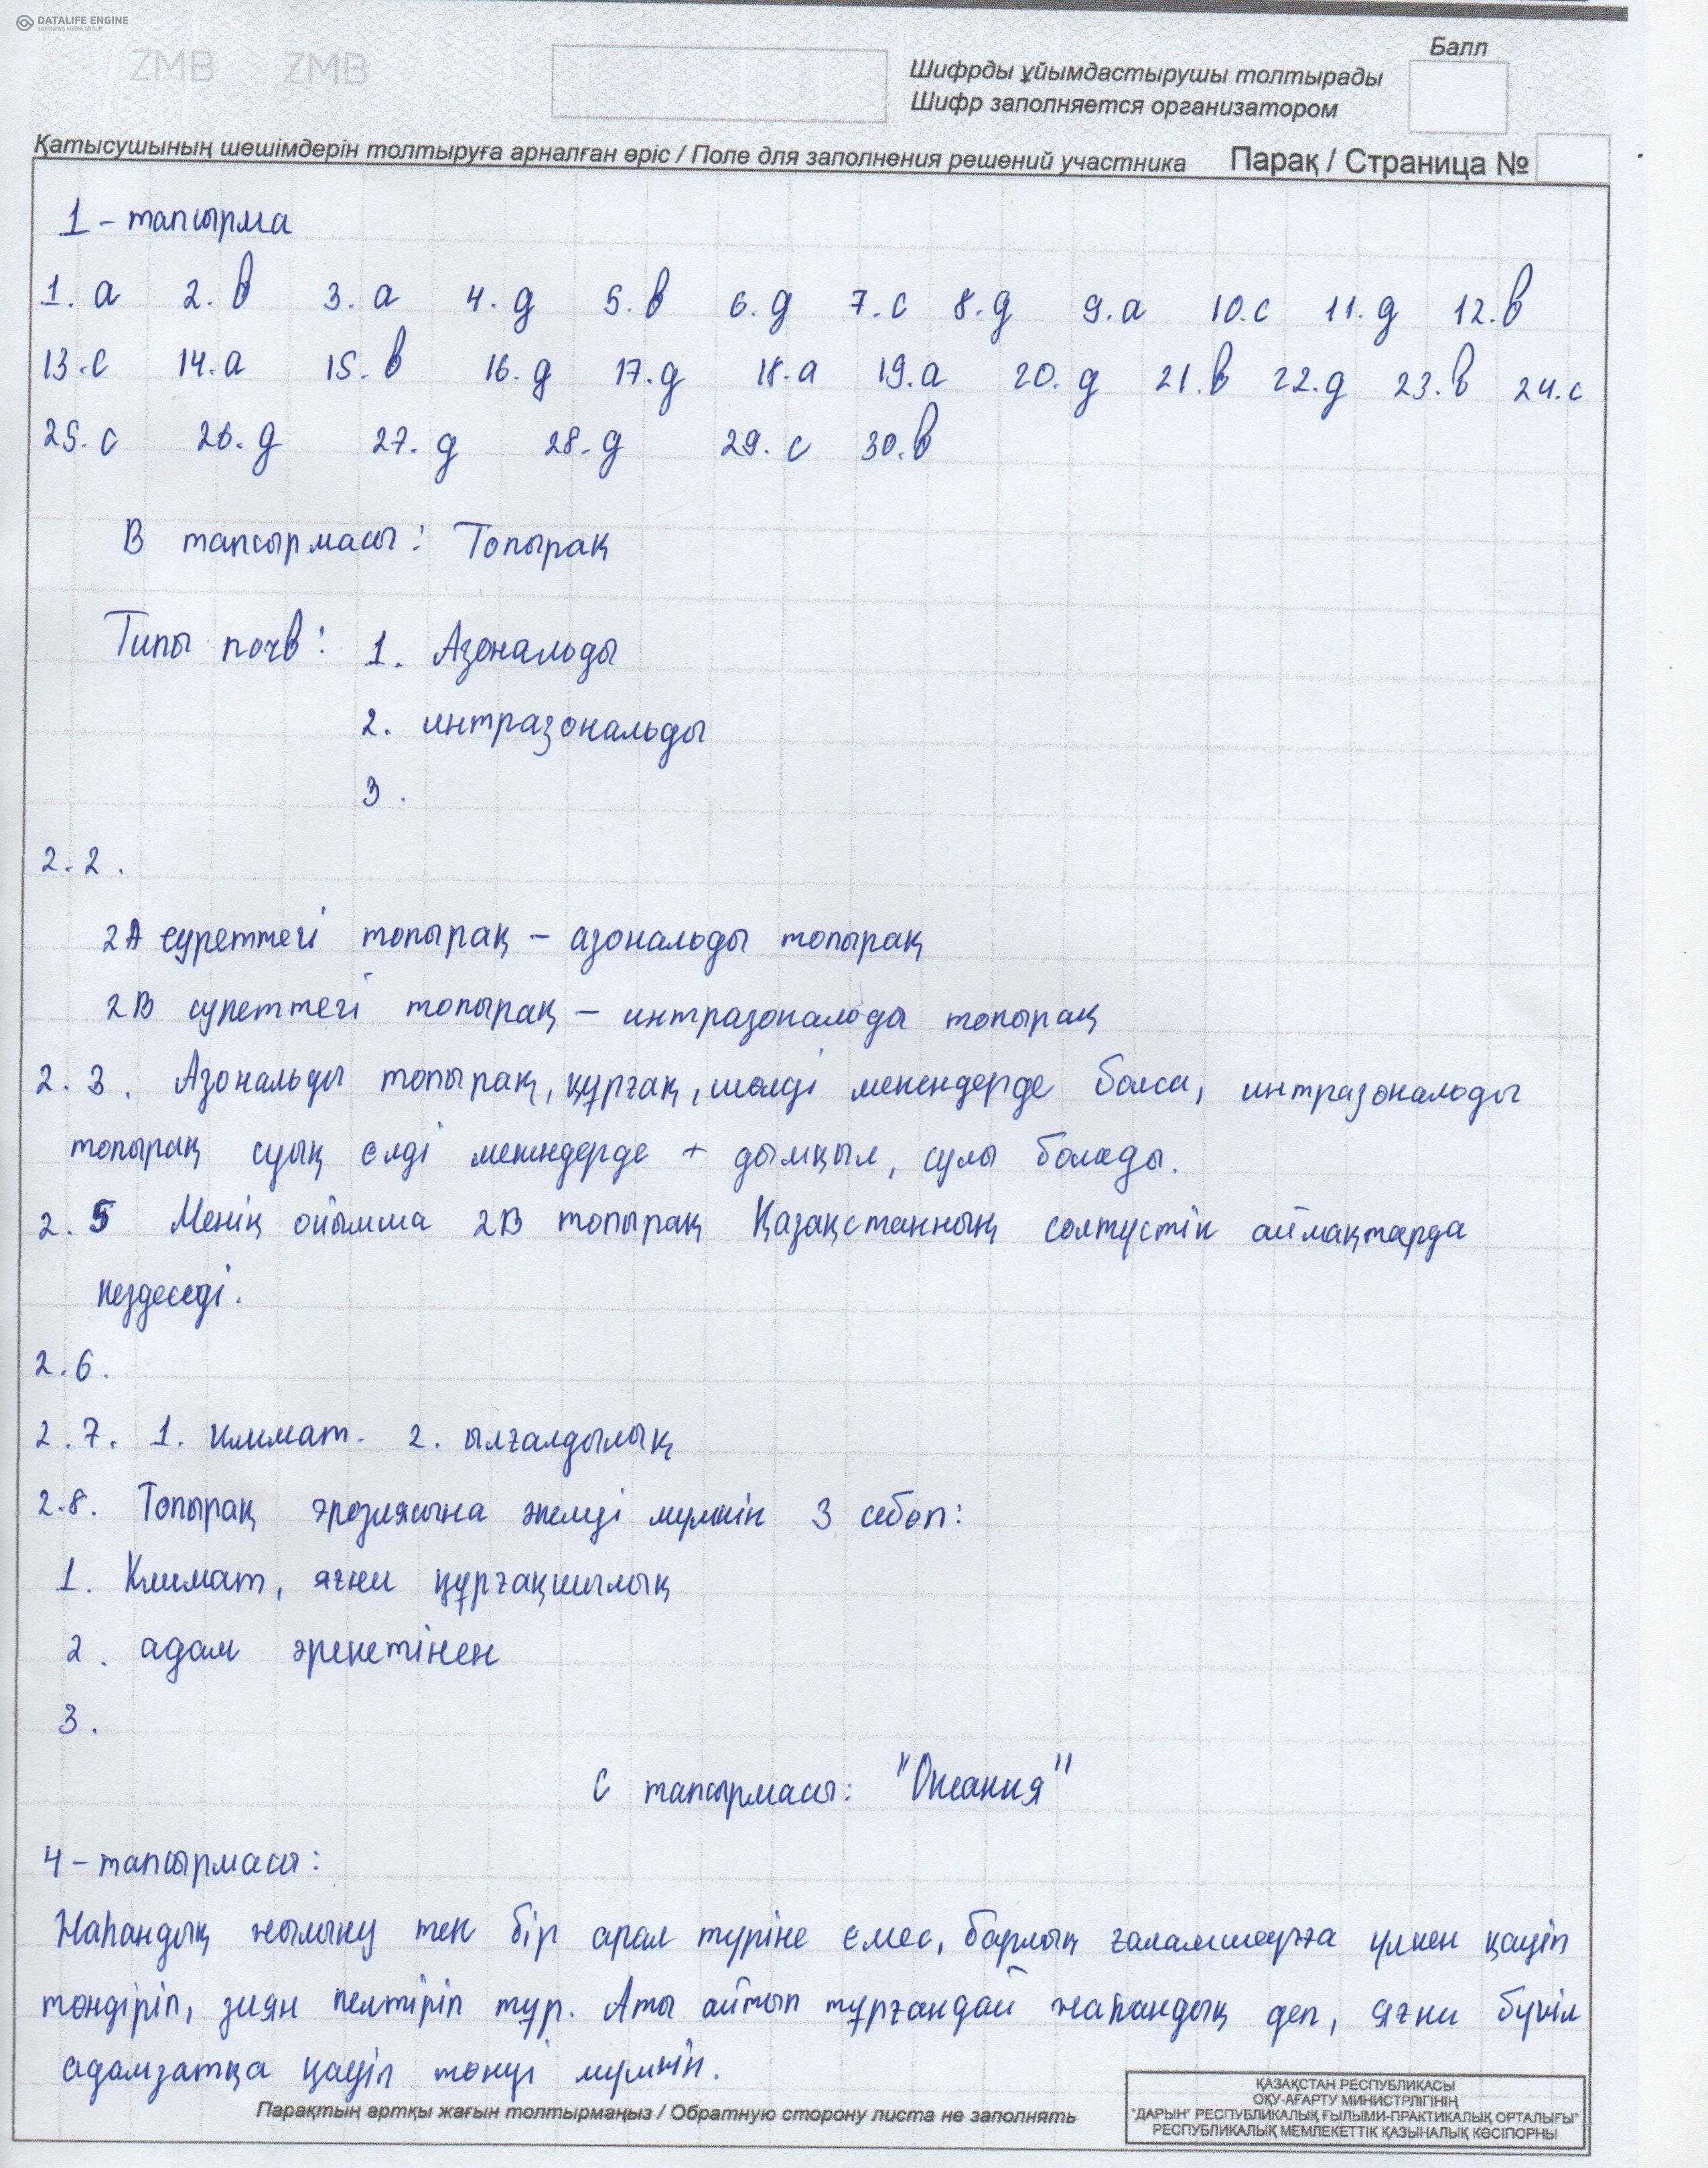 DATALIFE ENGINE
SOFTNEWS MEDIA GROUP
ZMB ZMB
Балл
Шифрды ұйымдастырушы толтырады
Шифр заполняется организатором
Қатысушының шешімдерін толтыруға арналған өріс / Поле для заполнения решений участника Парақ / Страница №
1 - тапсырма
1. а 2. в 3. а 4. д 5. в 6. д 7. с 8. д 9. а 10. с 11. д 12. в
13. с 14. а 15. в 16. д 17. д 18. а 19. а 20. д 21. в 22. д 23. в 24. с
25. с 26. д 27. д 28. д 29. с 30. в
В тапсырмасы: Топырақ
Типы почв: 1. Азональды
2. интразональды
3.
2.2.
2А суреттегі топырақ – азональды топырақ
2В суреттегі топырақ – интразональды топырақ
2.3. Азональды топырақ, құрғақ, шөлді мекендерде болса, интразональды
топырақ суық елді мекендерде + дымқыл, сулы болады.
2.5 Менің ойымша 2В топырақ Қазақстанның солтүстік аймақтарда
кездеседі.
2.6.
2.7. 1. климат. 2. ылғалдылық
2.8. Топырақ эрозиясына әкелуі мүмкін 3 себеп:
1. Климат, яғни құрғақшылық
2. адам әрекетінен
3.
С тапсырмасы: "Океания"
4 - тапсырмасы:
Жаһандық жылыну тек бір арал түріне емес, барлық ғаламшарға үлкен қауіп
төндіріп, зиян келтіріп тұр. Аты айтып тұрғандай жаһандық деп, яғни бүкіл
адамзатқа қауіп төнуі мүмкін.
Парақтың артқы жағын толтырмаңыз / Обратную сторону листа не заполнять
ҚАЗАҚСТАН РЕСПУБЛИКАСЫ
ОҚУ-АҒАРТУ МИНИСТРЛІГІНІҢ
"ДАРЫН" РЕСПУБЛИКАЛЫҚ ҒЫЛЫМИ-ПРАКТИКАЛЫҚ ОРТАЛЫҒЫ"
РЕСПУБЛИКАЛЫҚ МЕМЛЕКЕТТІК ҚАЗЫНАЛЫҚ КӘСІПОРНЫ